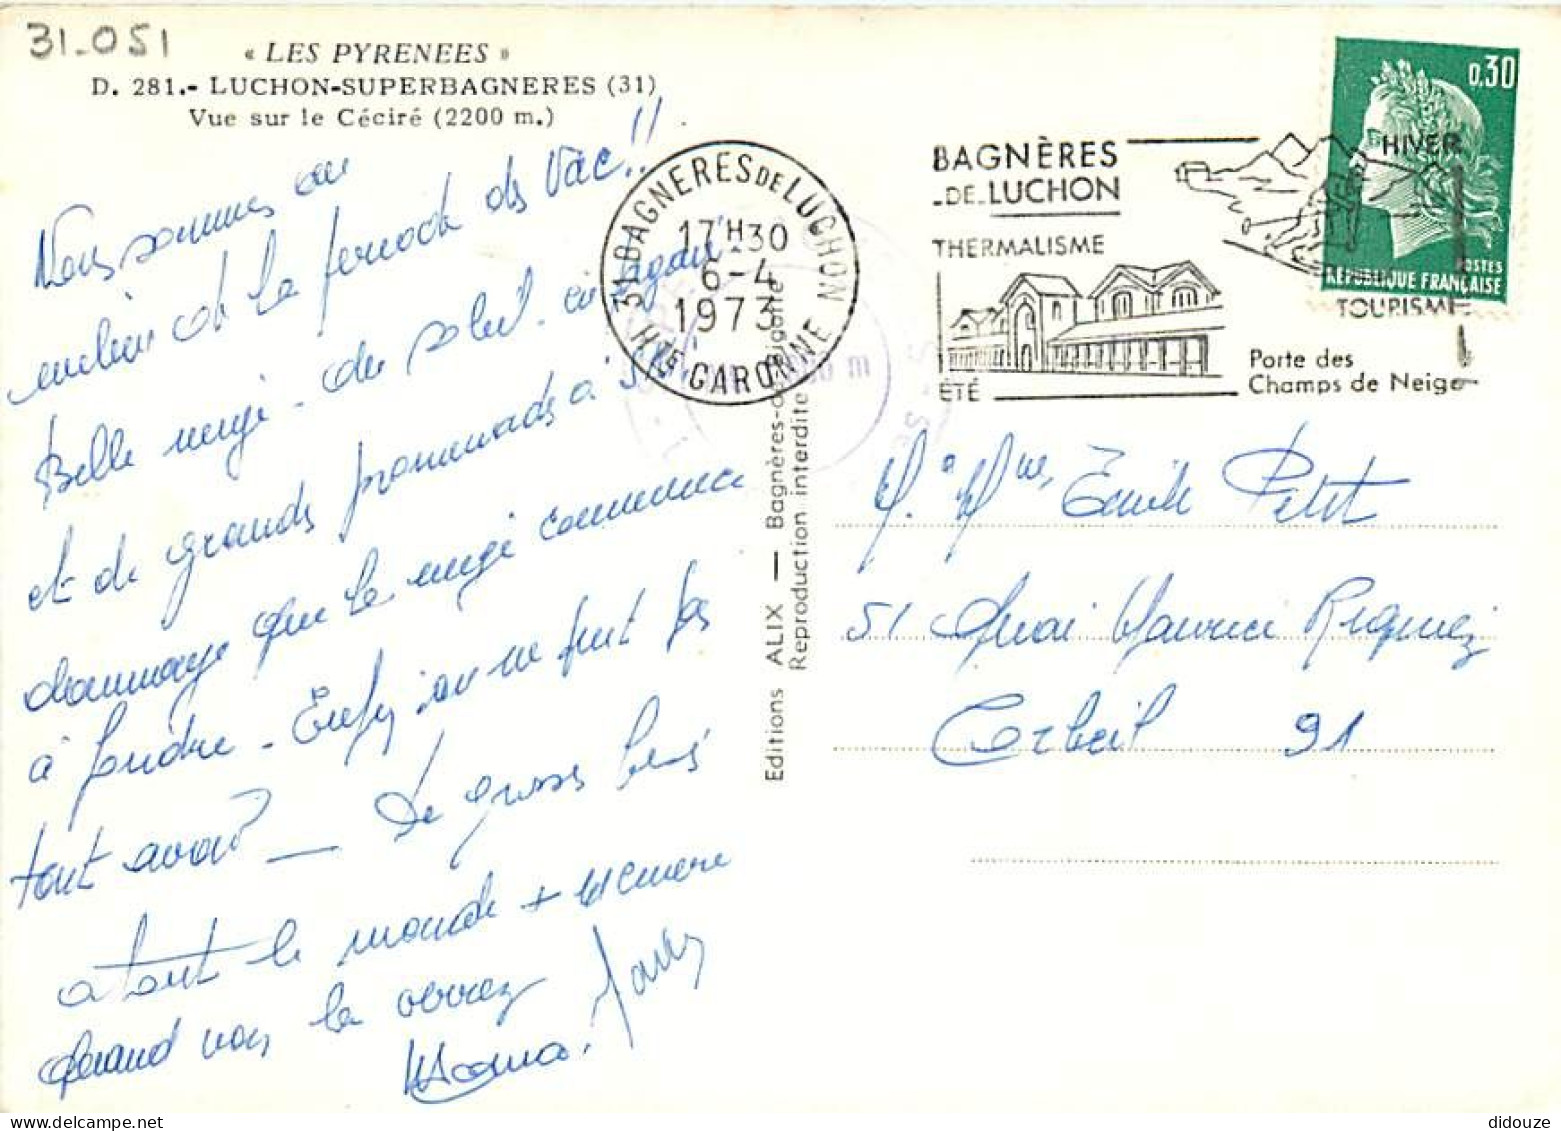 31-051
« LES PYRENEES »
D. 281.- LUCHON-SUPERBAGNERES (31)
Vue sur le Céciré (2200 m.)
Nous sommes au
milieu de la periode des Vac!!
Belle neige - du soleil.
et de grands promenades à ski
dommage que la neige commence
à fondre - Enfin on ne peut pas
tout avoir - De gross bais
a tout le monde +
Quand vous la
31 BAGNERES DE LUCHON
17H30
6-4
1973
HTE GARONNE
BAGNÈRES
-DE-LUCHON
THERMALISME
ÉTÉ
HIVER
TOURISME
Porte des
Champs de Neige
0,30
POSTES
RÉPUBLIQUE FRANÇAISE
Editions ALIX — Bagnères-de-Bigorre
Reproduction interdite
M. Mme Emile Petit
51 Quai Maurice Riquiez
Corbeil 91
didouze